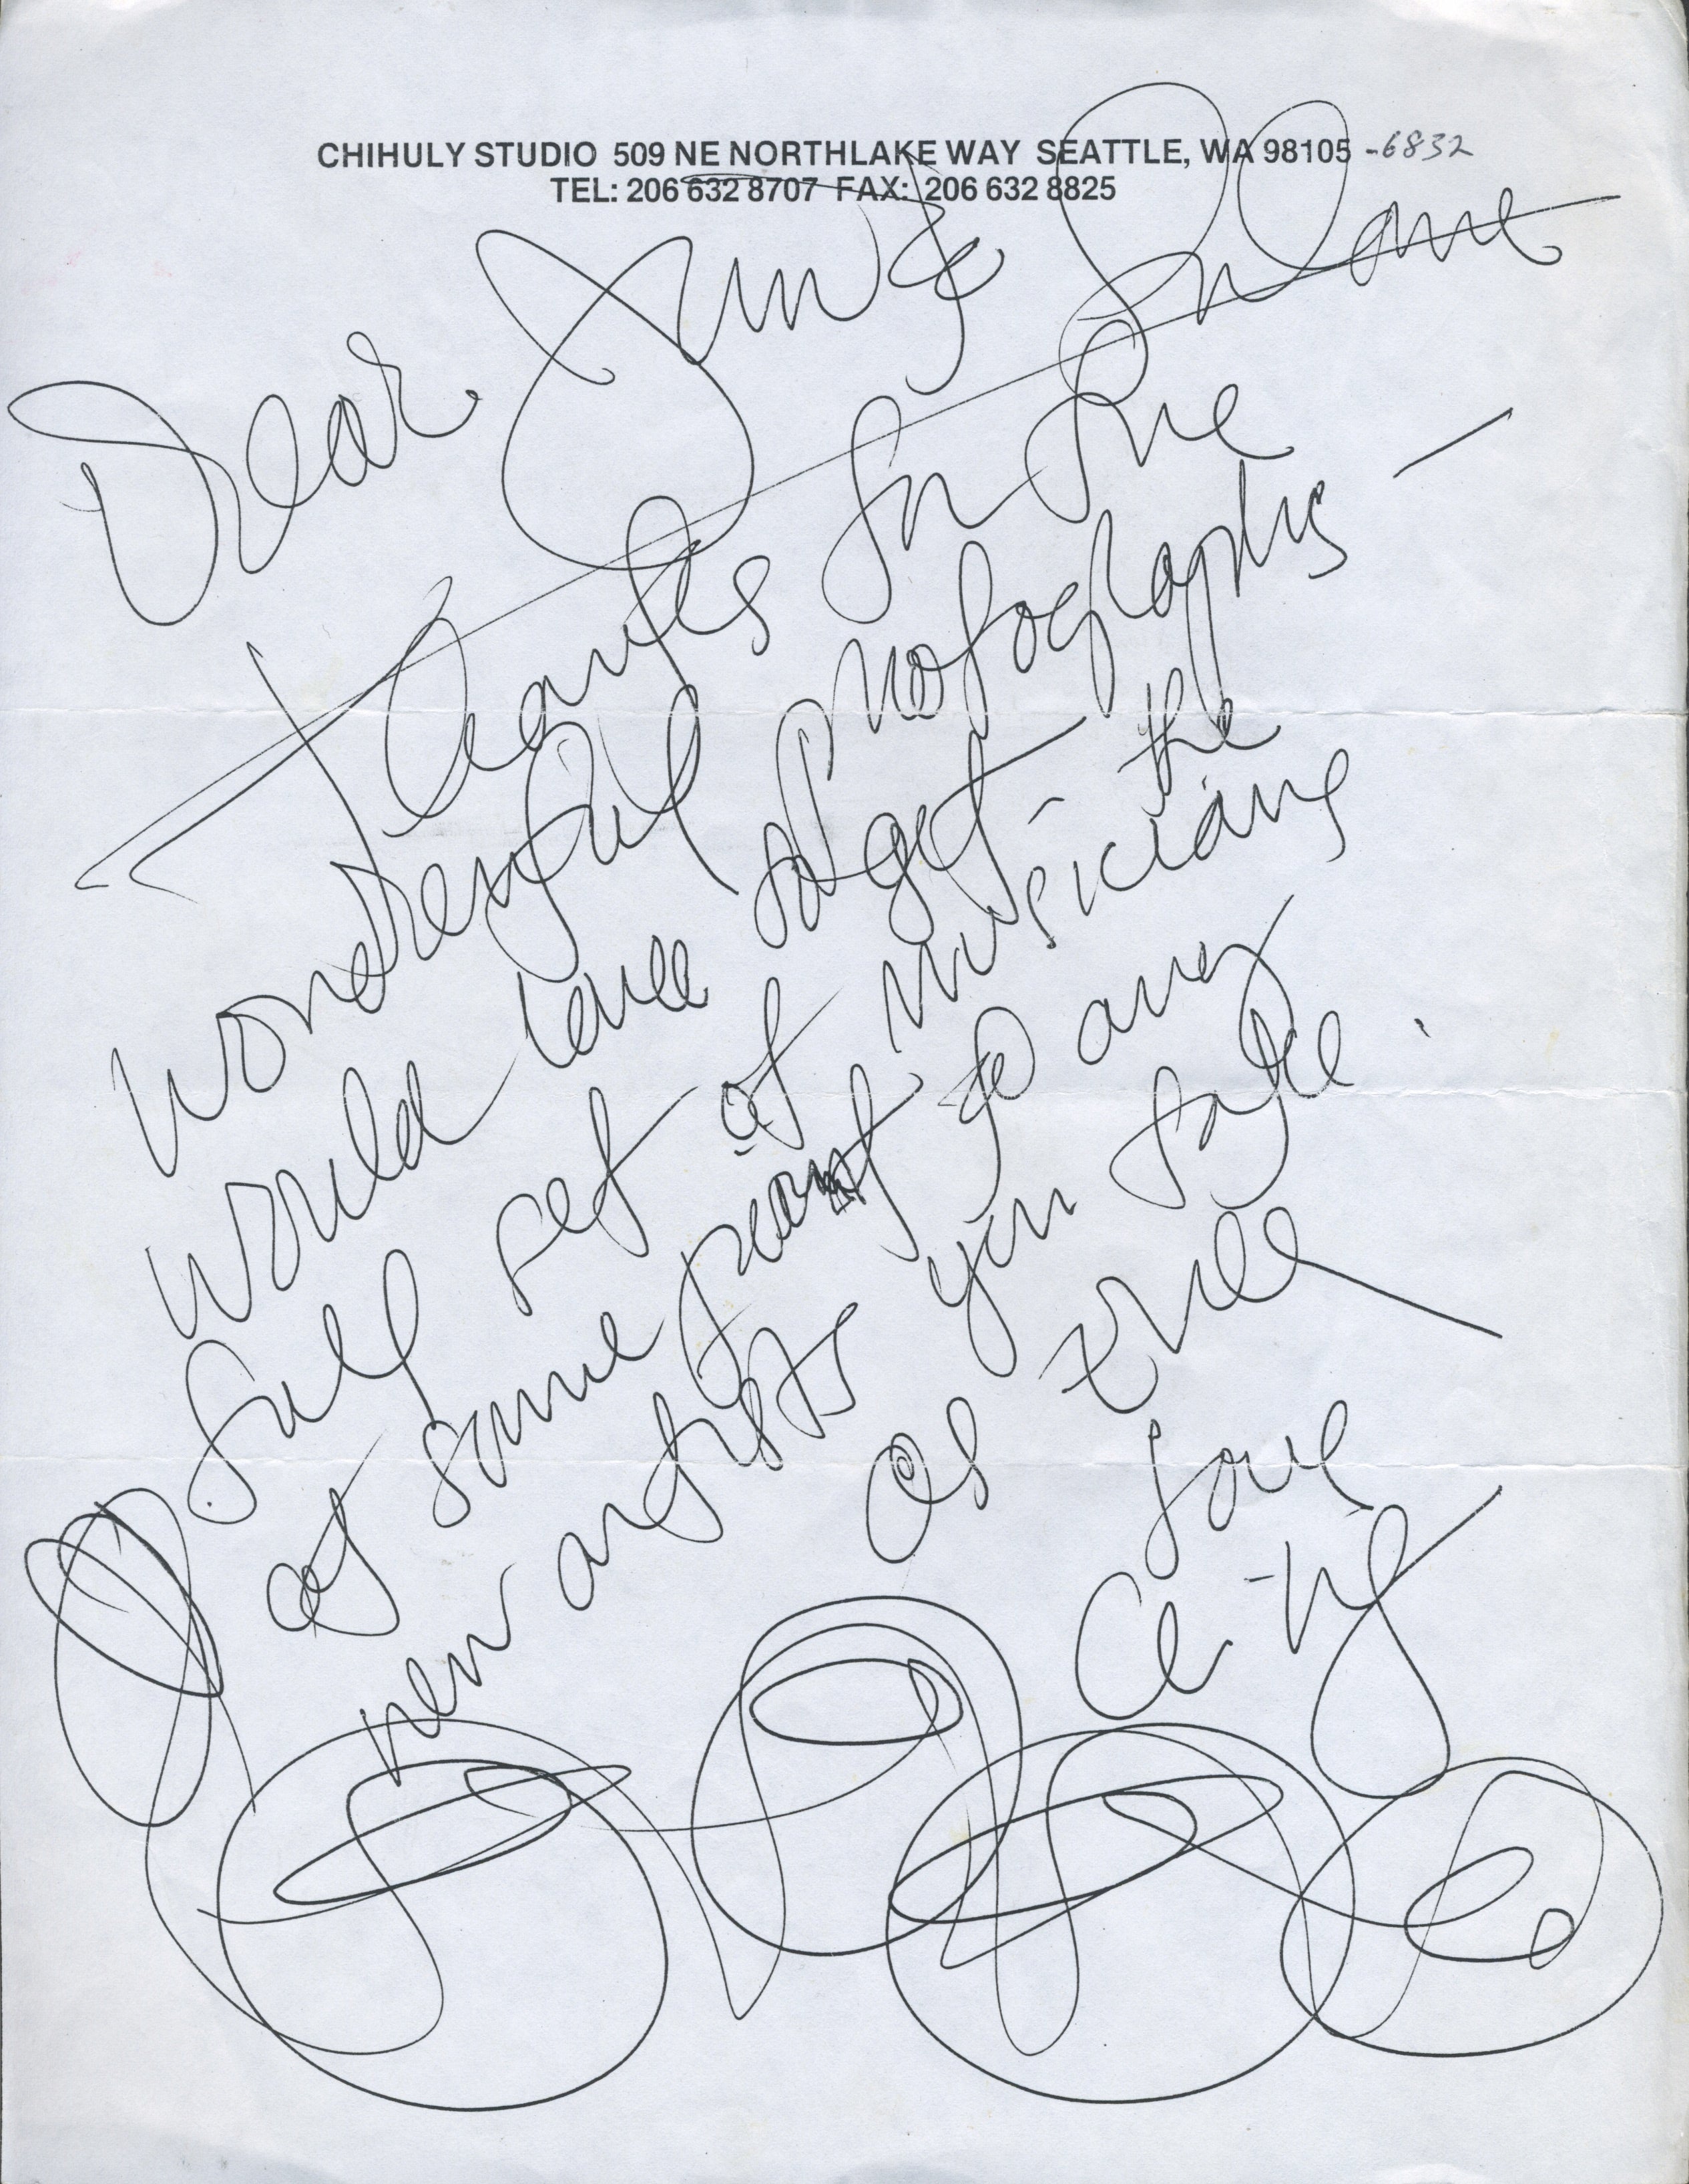 CHIHULY STUDIO 509 NE NORTHLAKE WAY SEATTLE, WA 98105 -6832
TEL: 206 632 8707 FAX: 206 632 8825
Dear
Thanks for the
wonderful photographs —
would love to get the
full set of musicians
at some point & any
new artists you take.
as well
Love